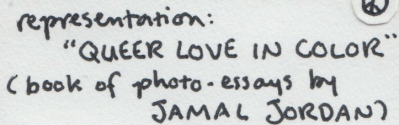 representation:
"QUEER LOVE IN COLOR"
(book of photo-essays by
JAMAL JORDAN)